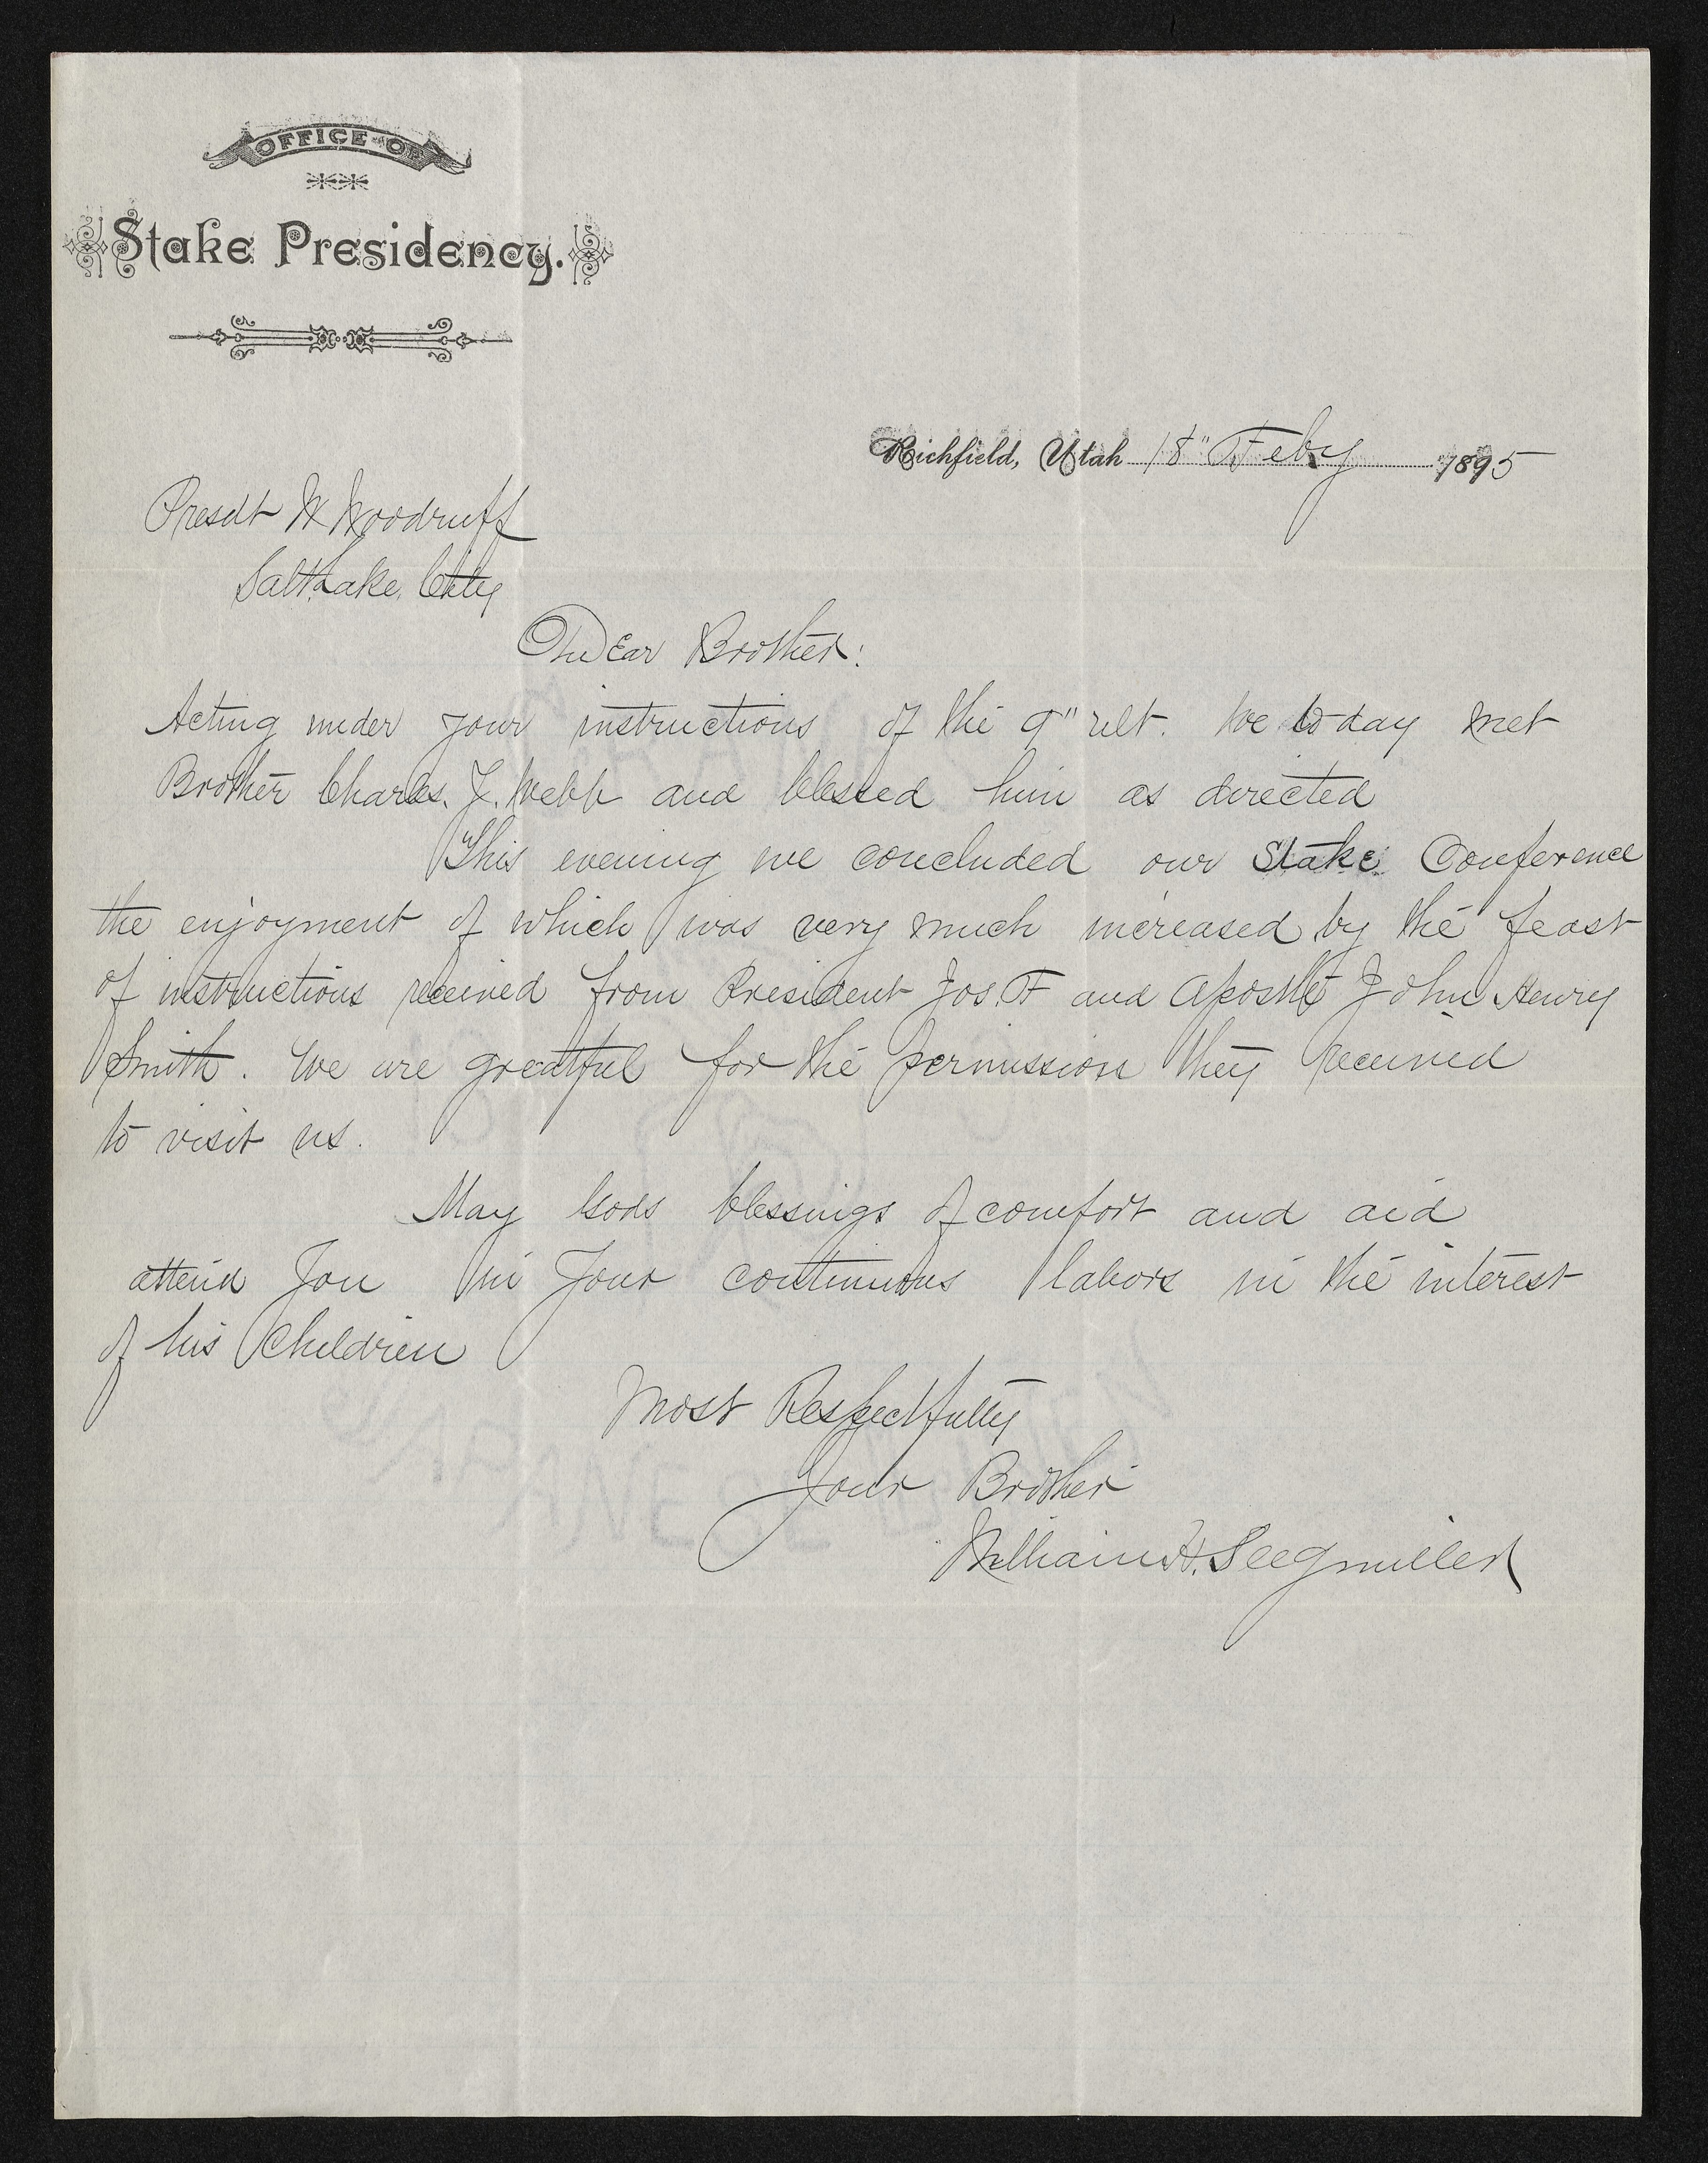 OFFICE OF
Stake Presidency.
Richfield, Utah 18" Feby 1895
Presdt W Woodruff
Salt Lake City
Dear Brother:
Acting under your instructions of the 9" ult. We to day met
Brother Charles. J. Webb and blessed him as directed
This evening we concluded our Stake Conference
the enjoyment of which was very much increased by the feast
of instructions received from President Jos. F and Apostle John Henry
Smith. We are greatful for the permission they received
to visit us.
May Gods blessings of comfort and aid
attend You in Your continuous labors in the interest
of his Children
Most Respectfully
Your Brother
William H. Seegmiller